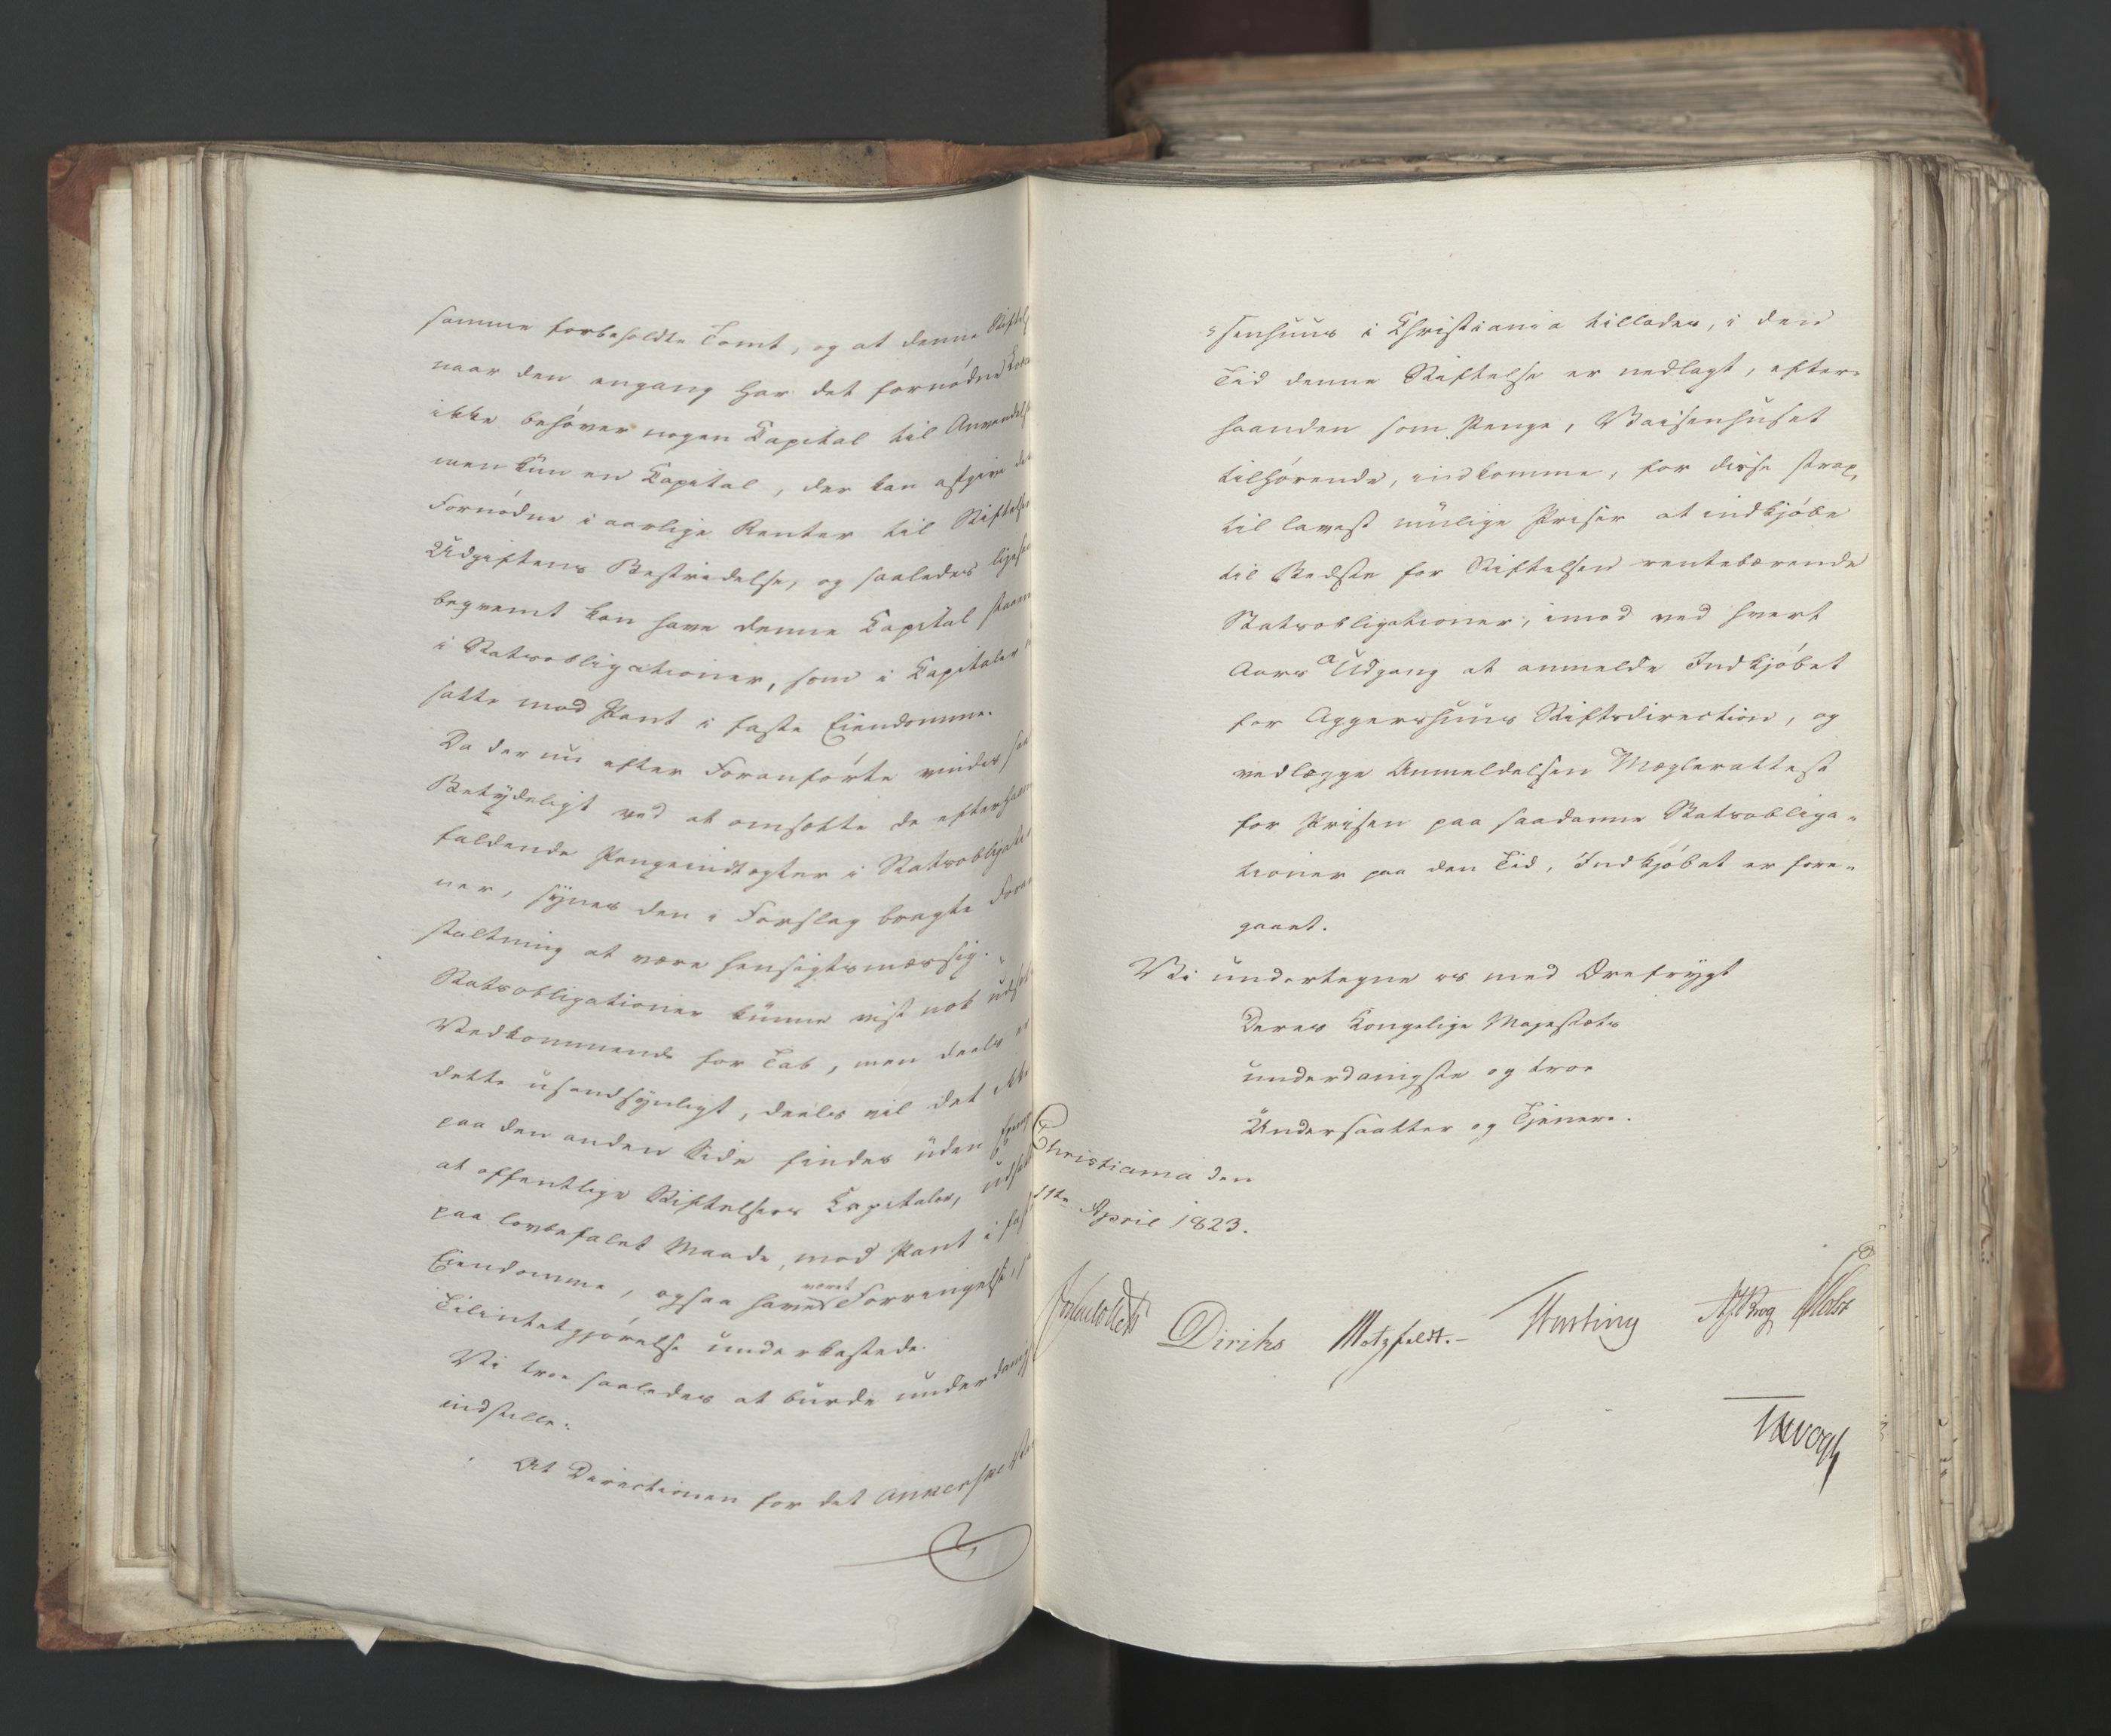 samme forbeholdte Tomt, og at denne Stiftels
naar den engang har det fornødne
ikke behøver nogen Capital til Anvendels
men kun en Capital, der kan afgive det
Fornødne i aarlige Renter til Stiftelsen
Udgifters Bestridelse, og saaledes ligesaa
beqvemt kan have denne Capital staaen
i Statsobligationer, som i Capitaler
satte mod Pant i faste Eiendomme.
Da der nu efter Foranførte vindes saa
Betydeligt ved at omsætte de efterhaan
faldende Pengeindtægter i Statsobligatio
ner, synes den i Forslag bragte Foran
staltning at være hensigtsmæssig.
Statsobligationer kunne vist nok udsæt
Vedkommende for Tab, men deels er
dette usandsynligt, deels vil det ikke
paa den anden Side findes uden Exemp
at offentlige Stiftelsers Capitaler, udsatte
paa lovbefalet Maade, mod Pant i fas
Eiendomme, ogsaa have været Forringelse,
Tilintetgjørelse underkastede.
Vi troe saaledes at burde underdanig
indstille:
At Directionen for det Ankerske
"senhuus i Christiania tillades, i den
Tid denne Stiftelse er nedlagt, efter-
haanden som Penge, Waisenhuset
tilhørende, indkomme, for disse strax,
til lavest mulige Priser at indkjøbe
til Bedste for Stiftelsen rentebærende
Statsobligationer, imod ved hvert
Aars Udgang at anmelde Indkjøbet
for Aggershuus Stiftsdirection, og
vedlægge Anmeldelsen Mæglerattest
for Prisen paa saadanne Statsobliga-
tioner paa den Tid, Indkjøbet er fore-
gaaet.
Vi undertegne os med Ærefrygt
Deres Kongelige Majestæts
underdanigste og troe
Undersaatter og Tjenere.
Christiania den
April 1823.
Diriks Motzfeldt.- Krog